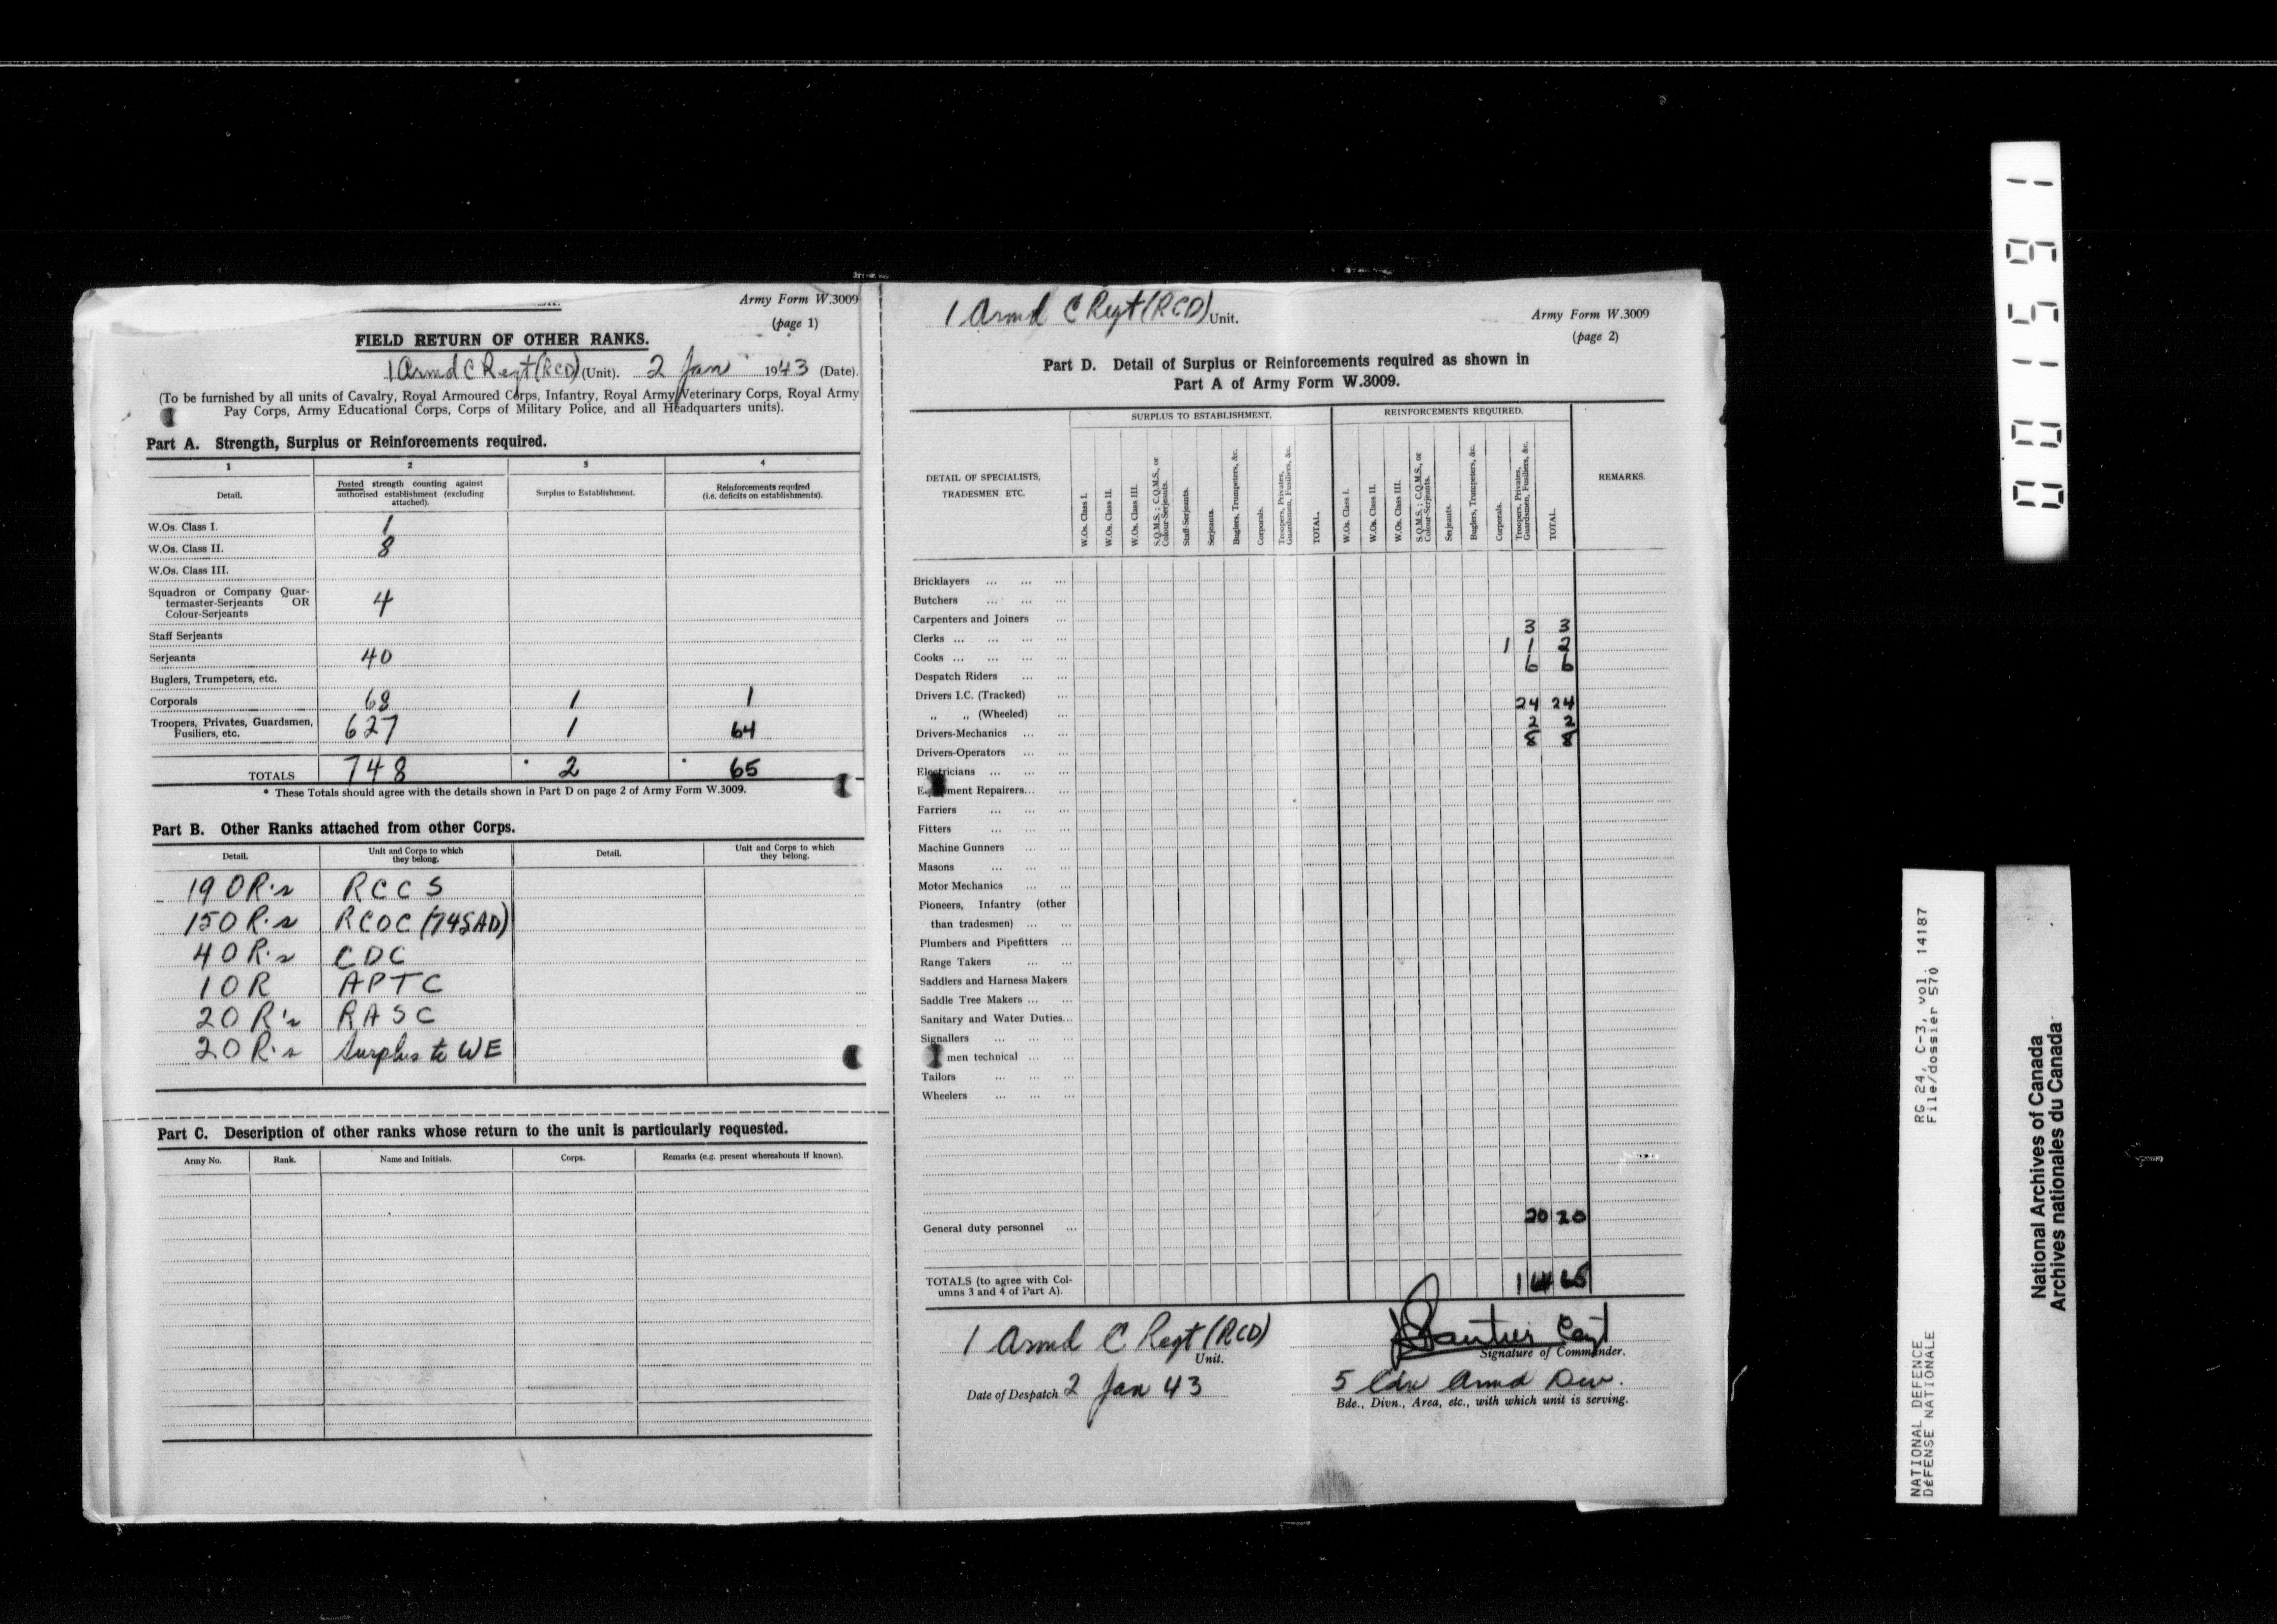 Army Form W.3009
(page 1)
FIELD RETURN OF OTHER RANKS.
1 Armd C Regt (RCD) (Unit). 2 Jan 1943 (Date).
(To be furnished by all units of Cavalry, Royal Armoured Corps, Infantry, Royal Army Veterinary Corps, Royal Army
Pay Corps, Army Educational Corps, Corps of Military Police, and all Headquarters units).
Part A. Strength, Surplus or Reinforcements required.
1 2 3 4
Detail. Posted strength counting against authorised establishment (excluding attached). Surplus to Establishment. Reinforcements required (i.e. deficits on establishments).
W.Os. Class I. 1
W.Os. Class II. 8
W.Os. Class III.
Squadron or Company Quar-
termaster-Serjeants OR
Colour-Serjeants 4
Staff Serjeants
Serjeants 40
Buglers, Trumpeters, etc.
Corporals 68 1 1
Troopers, Privates, Guardsmen,
Fusiliers, etc. 627 1 64
TOTALS 748 * 2 * 65
* These Totals should agree with the details shown in Part D on page 2 of Army Form W.3009.
Part B. Other Ranks attached from other Corps.
Detail. Unit and Corps to which they belong. Detail. Unit and Corps to which they belong.
19 OR's RCCS
15 OR's RCOC (74SAD)
4 OR's CDC
1 OR APTC
2 OR's RASC
2 OR's Surplus to WE
Part C. Description of other ranks whose return to the unit is particularly requested.
Army No. Rank. Name and Initials. Corps. Remarks (e.g. present whereabouts if known).
1 Armd C Regt (RCD) Unit.
Army Form W.3009
(page 2)
Part D. Detail of Surplus or Reinforcements required as shown in
Part A of Army Form W.3009.
SURPLUS TO ESTABLISHMENT. REINFORCEMENTS REQUIRED.
DETAIL OF SPECIALISTS,
TRADESMEN ETC.
W.Os. Class I.
W.Os. Class II.
W.Os. Class III.
S.Q.M.S.; C.Q.M.S., or Colour-Serjeants.
Staff-Serjeants.
Serjeants.
Buglers, Trumpeters, &c.
Corporals.
Troopers, Privates, Guardsmen, Fusiliers, &c.
TOTAL.
W.Os. Class I.
W.Os. Class II.
W.Os. Class III.
S.Q.M.S.; C.Q.M.S., or Colour-Serjeants.
Serjeants.
Buglers, Trumpeters, &c.
Corporals.
Troopers, Privates, Guardsmen, Fusiliers, &c.
TOTAL.
REMARKS.
Bricklayers ... ... ...
Butchers ... ... ...
Carpenters and Joiners ...
Clerks ... ... ... ... 3 3
Cooks ... ... ... ... 1 1 2
Despatch Riders ... ... 6 6
Drivers I.C. (Tracked) ...
„ „ (Wheeled) ... 24 24
Drivers-Mechanics ... ... 2 2
Drivers-Operators ... ... 8 8
Electricians ... ... ...
Equipment Repairers... ...
Farriers ... ... ...
Fitters ... ... ...
Machine Gunners ... ...
Masons ... ... ...
Motor Mechanics ... ...
Pioneers, Infantry (other
than tradesmen) ... ...
Plumbers and Pipefitters ...
Range Takers ... ...
Saddlers and Harness Makers
Saddle Tree Makers ... ...
Sanitary and Water Duties...
Signallers ... ... ...
men technical ...
Tailors ... ... ...
Wheelers ... ... ...
General duty personnel ... 20 20
TOTALS (to agree with Col-
umns 3 and 4 of Part A). 1 64 65
1 Armd C Regt (RCD)
Unit.
Capt
Signature of Commander.
Date of Despatch 2 Jan 43
5 Cdn Armd Div.
Bde., Divn., Area, etc., with which unit is serving.
001591
RG 24, C-3, vol. 14187
File/dossier 570
NATIONAL DEFENCE
DÉFENSE NATIONALE
National Archives of Canada
Archives nationales du Canada